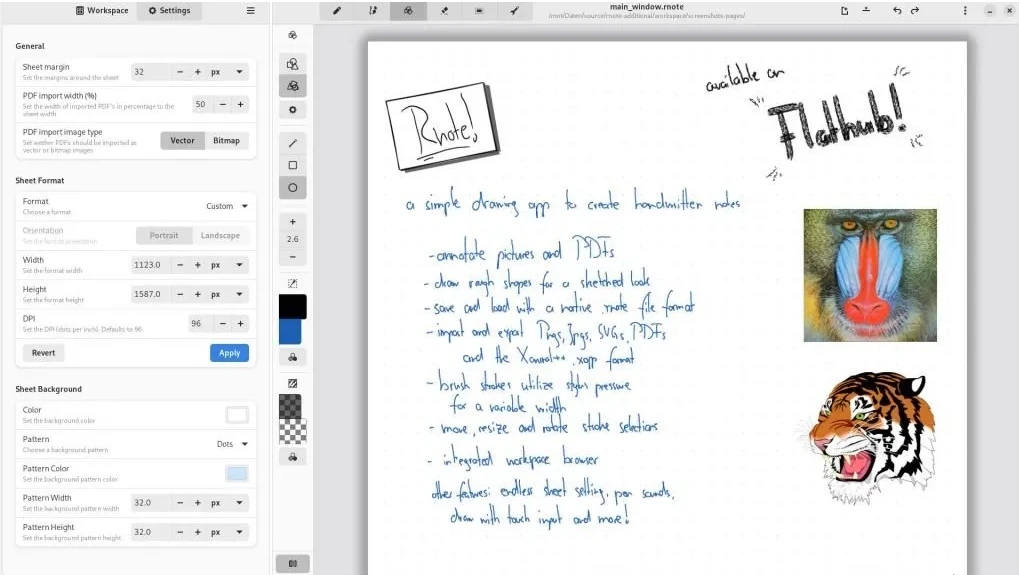 Workspace
Settings
main_window.rnote
/mnt/Daten/source/rnote-additional/workspace/screenshot-pages/
General
Sheet margin
Set the margins around the sheet
32
px
PDF import width (%)
Set the width of imported PDF's in percentage to the
sheet width
50
PDF import image type
Set wether PDFs should be imported as
vector or bitmap images
Vector
Bitmap
Sheet Format
Format
Choose a format
Custom
Orientation
Set the format orientation
Portrait
Landscape
Width
Set the format width
1123.0
px
Height
Set the format height
1587.0
px
DPI
Set the DPI (dots per inch). Defaults to 96
96
Revert
Apply
Sheet Background
Color
Set the background color
Pattern
Choose a background pattern
Dots
Pattern Color
Set the background pattern color
Pattern Width
Set the background pattern width
32.0
px
Pattern Height
Set the background pattern height
32.0
px
2.6
Rnote!
available on
Flathub!
a simple drawing app to create handwritten notes
- annotate pictures and PDFs
- draw rough shapes for a sketched look
- save and load with a native .rnote file format
- import and export Pngs, Jpgs, SVGs, PDFs
and the Xournal++ .xopp format
- brush strokes utilize stylus pressure
for a variable width
- move, resize and rotate stroke selections
- integrated workspace browser
other features: endless sheet setting, pen sounds,
draw with touch input and more!